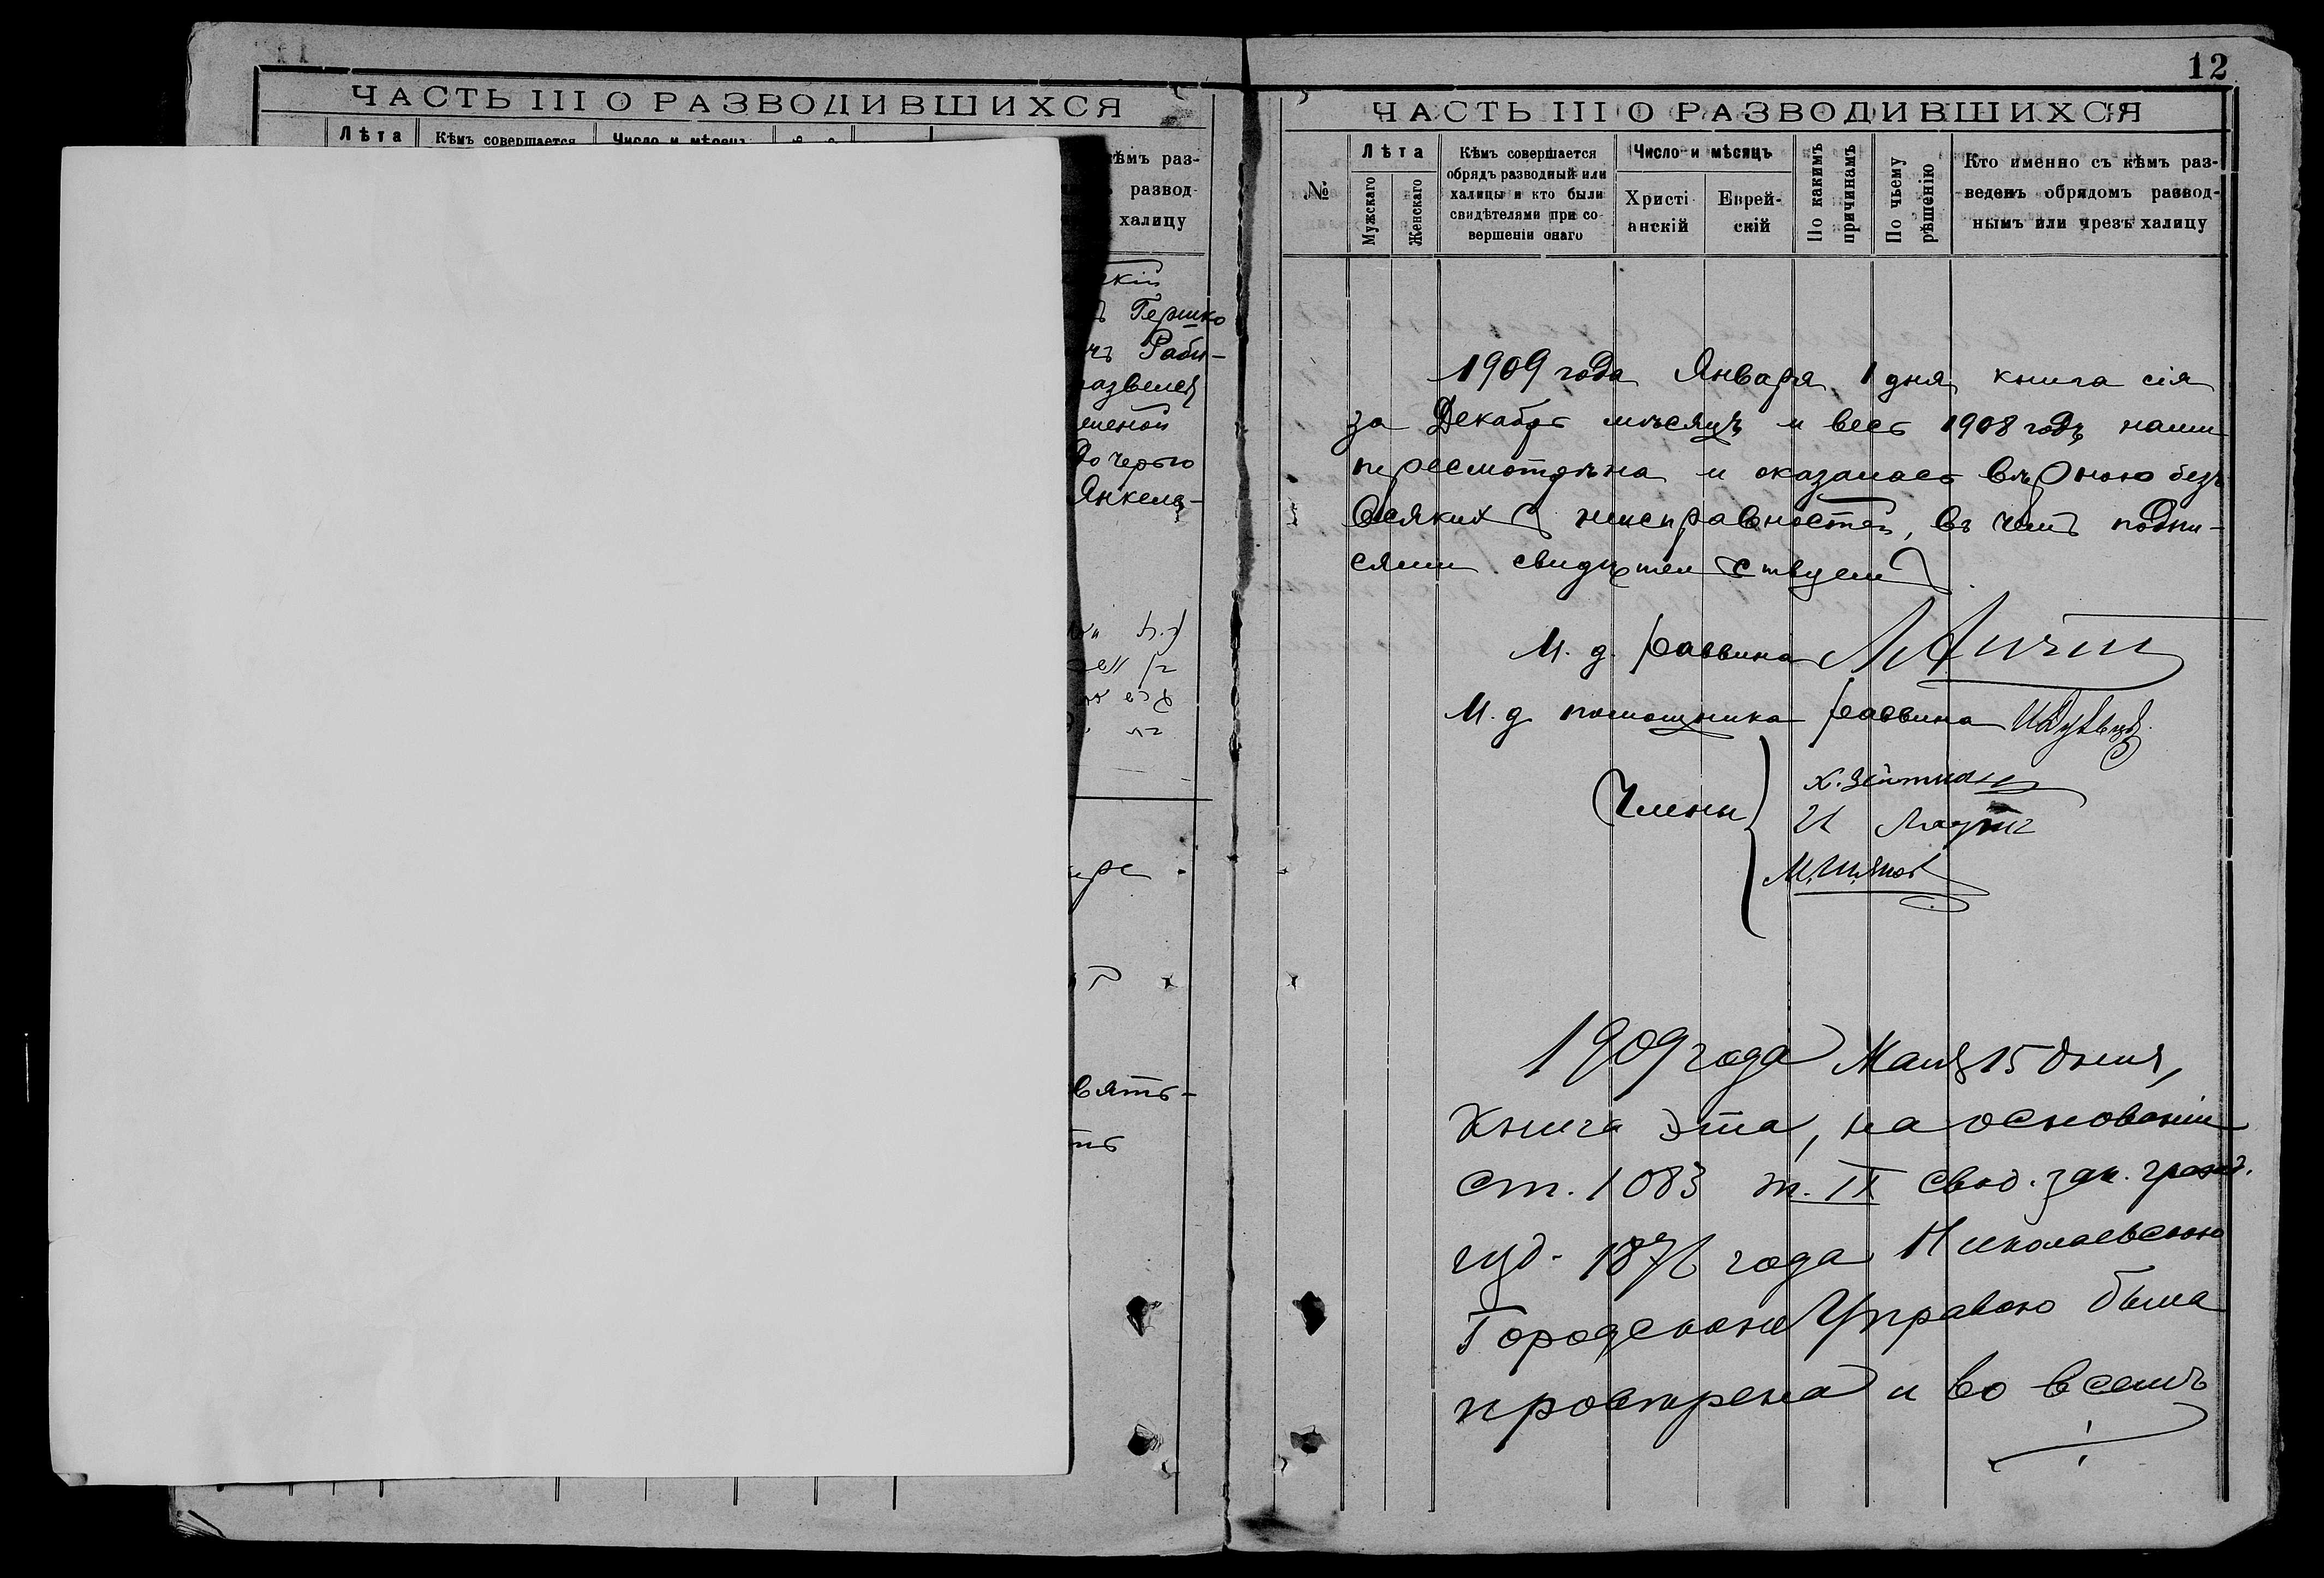 ЧАСТЬ III О РАЗВОДИВШИХСЯ
Лѣта
Кѣмъ совершается
Число и мѣсяцъ
кѣмъ раз-
развод-
халицу
кій
Гершко
Раби-
развелся
женой
дочерью
Янкеле-
вять-
12
ЧАСТЬ III О РАЗВОДИВШИХСЯ
№
Лѣта
Мужскаго
Женскаго
Кѣмъ совершается
обрядъ разводный или
халицы и кто были
свидѣтелями при со-
вершеніи онаго
Число и мѣсяцъ
Христі-
анскій
Еврей-
скій
По какимъ
причинамъ
По чьему
рѣшенію
Кто именно съ кѣмъ раз-
веденъ обрядомъ развод-
нымъ или чрезъ халицу
1909 года Января 1 дня книга сія
за Декабрь мѣсяцъ и весь 1908 годъ нами
пересмотрѣна и оказалась вѣрною безъ
всякихъ неисправностей, въ чемъ подпи-
сями свидѣтельствуемъ
И. д. раввина
И. д. помощника раввина
Члены
1909 года Мая 15 дня,
Книга эта, на основаніи
ст. 1083 т. IX свод. зак. гражд.
изд. 1876 года Николаевскою
Городскою Управою была
просмотрена и во всемъ